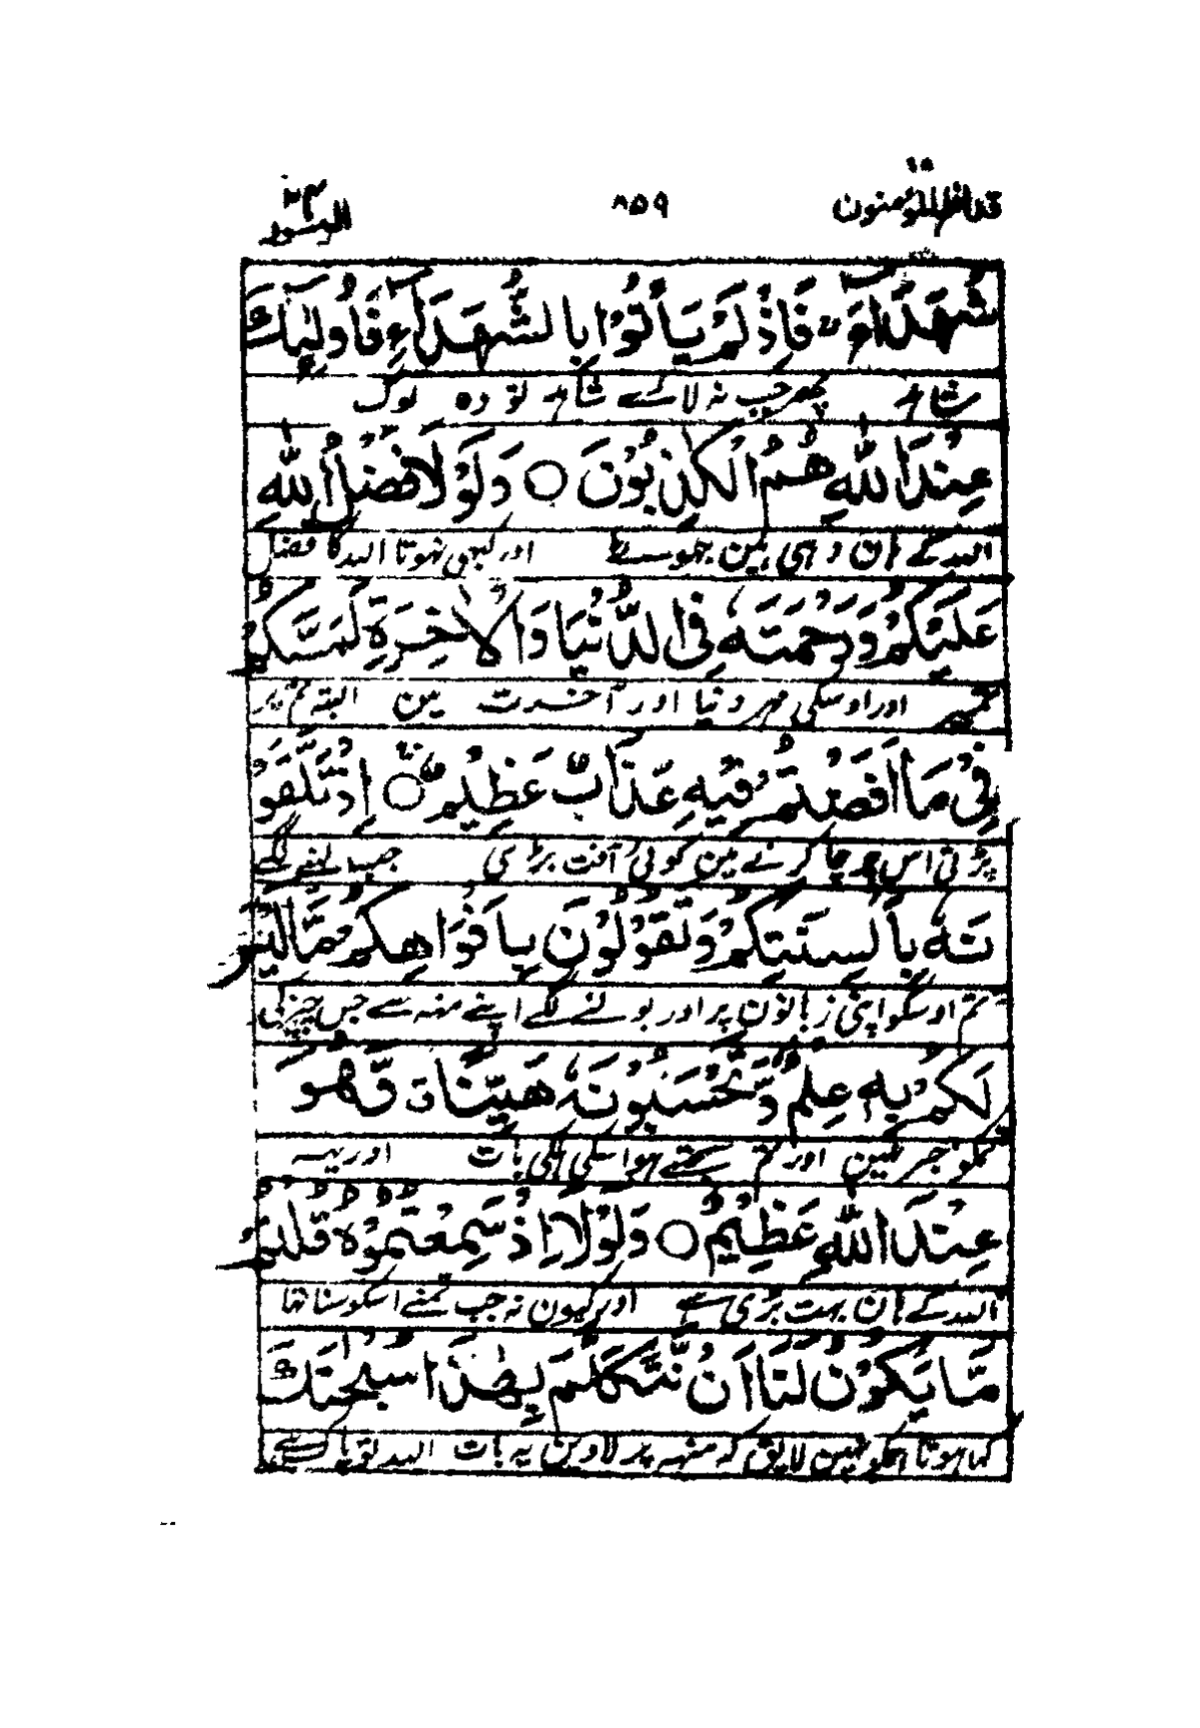 قد افلح المؤمنون ١٨
٨٥٩
النور ٢٤
شُهَدَآءَ ۚ فَاِذْ لَمْ يَاْتُوْا بِالشُّهَدَآءِ فَاُولٰٓئِكَ
شاہد پھر جب نہ لائے شاہد تو وہ لوگ
عِنْدَ اللّٰهِ هُمُ الْكٰذِبُوْنَ ○ وَلَوْلَا فَضْلُ اللّٰهِ
اللہ کے ہان وہی ہین جھوسٹے اور کبھی نہوتا اللہ کا فضل
عَلَيْكُمْ وَرَحْمَتُهٗ فِي الدُّنْيَا وَالْاٰخِرَةِ لَمَسَّكُمْ
تمپر اور اوسکی مہر دنیا اور آخرت مین البتہ تم پر
فِيْ مَآ اَفَضْتُمْ فِيْهِ عَذَابٌ عَظِيْمٌ ○ اِذْ تَلَقَّوْ
پڑتی اس چرچا کرنے مین کوئی آفت بڑی جب لینے لگے
نَهٗ بِاَلْسِنَتِكُمْ وَتَقُوْلُوْنَ بِاَفْوَاهِكُمْ مَّا لَيْسَ
تم اوسکو اپنی زبانون پر اور بولنے لگے اپنے منہ سے جس چیز کی
لَكُمْ بِهٖ عِلْمٌ وَّتَحْسَبُوْنَهٗ هَيِّنًا ۖ وَّهُوَ
تمکو خبر نہین اور تم سمجھتے ہو اسکی ہلکی بات اور یہ
عِنْدَ اللّٰهِ عَظِيْمٌ ○ وَلَوْلَآ اِذْ سَمِعْتُمُوْهُ قُلْتُمْ
اللہ کے ہان بہت بڑی ہے اور کیون نہ جب تمنے اسکو سنا تھا
مَّا يَكُوْنُ لَنَآ اَنْ نَّتَكَلَّمَ بِهٰذَا سُبْحٰنَكَ
کہا ہوتا ہمکو نہین لایق کہ منہہ پر لاوین یہ بات اللہ تو پاک ہے